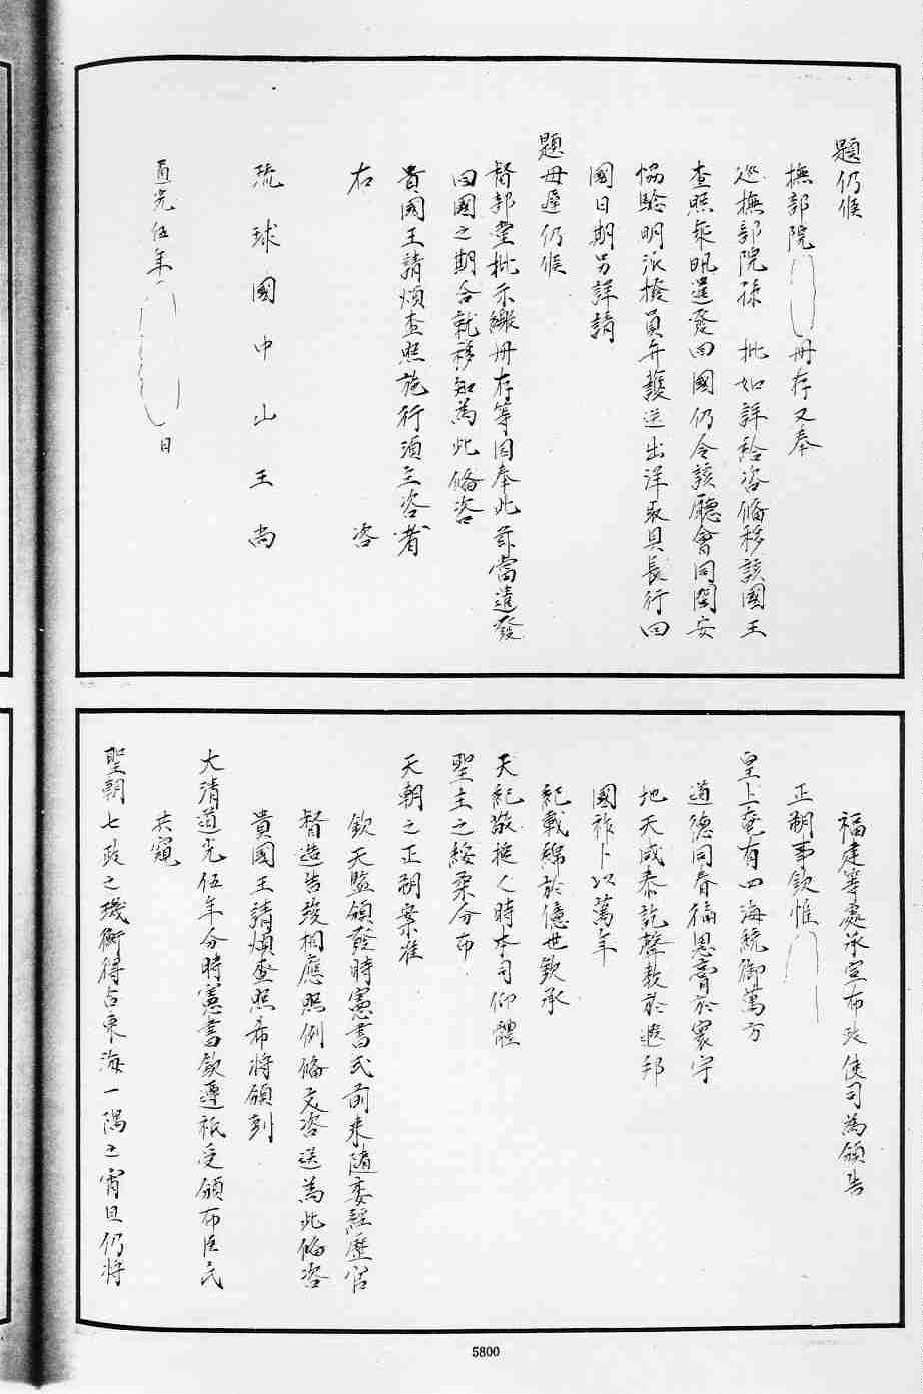 題仍候
撫部院 冊存又奉
巡撫部院孫 批如詳給咨偹移該國王
查照乘汛遣發回國仍令該廳會同閩安
協驗明派撥員弁護送出洋取具長行回
國日期另詳請
題毋遲仍候
督部堂批示繳冊存等因奉此前當遣發
回國之期合就移知為此偹咨
貴國王請煩查照施行須至咨者
右 咨
琉球國中山王尚
道光伍年 日
福建等處承宣布政使司為頒告
正朔事欽惟
皇上奄有四海統御萬方
道德同春福恩膏於寰宇
地天成泰訖聲教於遐邦
國祚卜以萬年
紀載綿於億世欽承
天紀敬授人時本司仰體
聖主之綏柔分布
天朝之正朔案准
欽天監頒發時憲書式前來隨委經歷官
督造告竣相應照例偹文咨送為此偹咨
貴國王請煩查照希將頒到
大清道光伍年分時憲書欽遵祗受頒布臣民
共窺
聖朝七政之璣衡得占東海一隅之宵旦仍將
5800